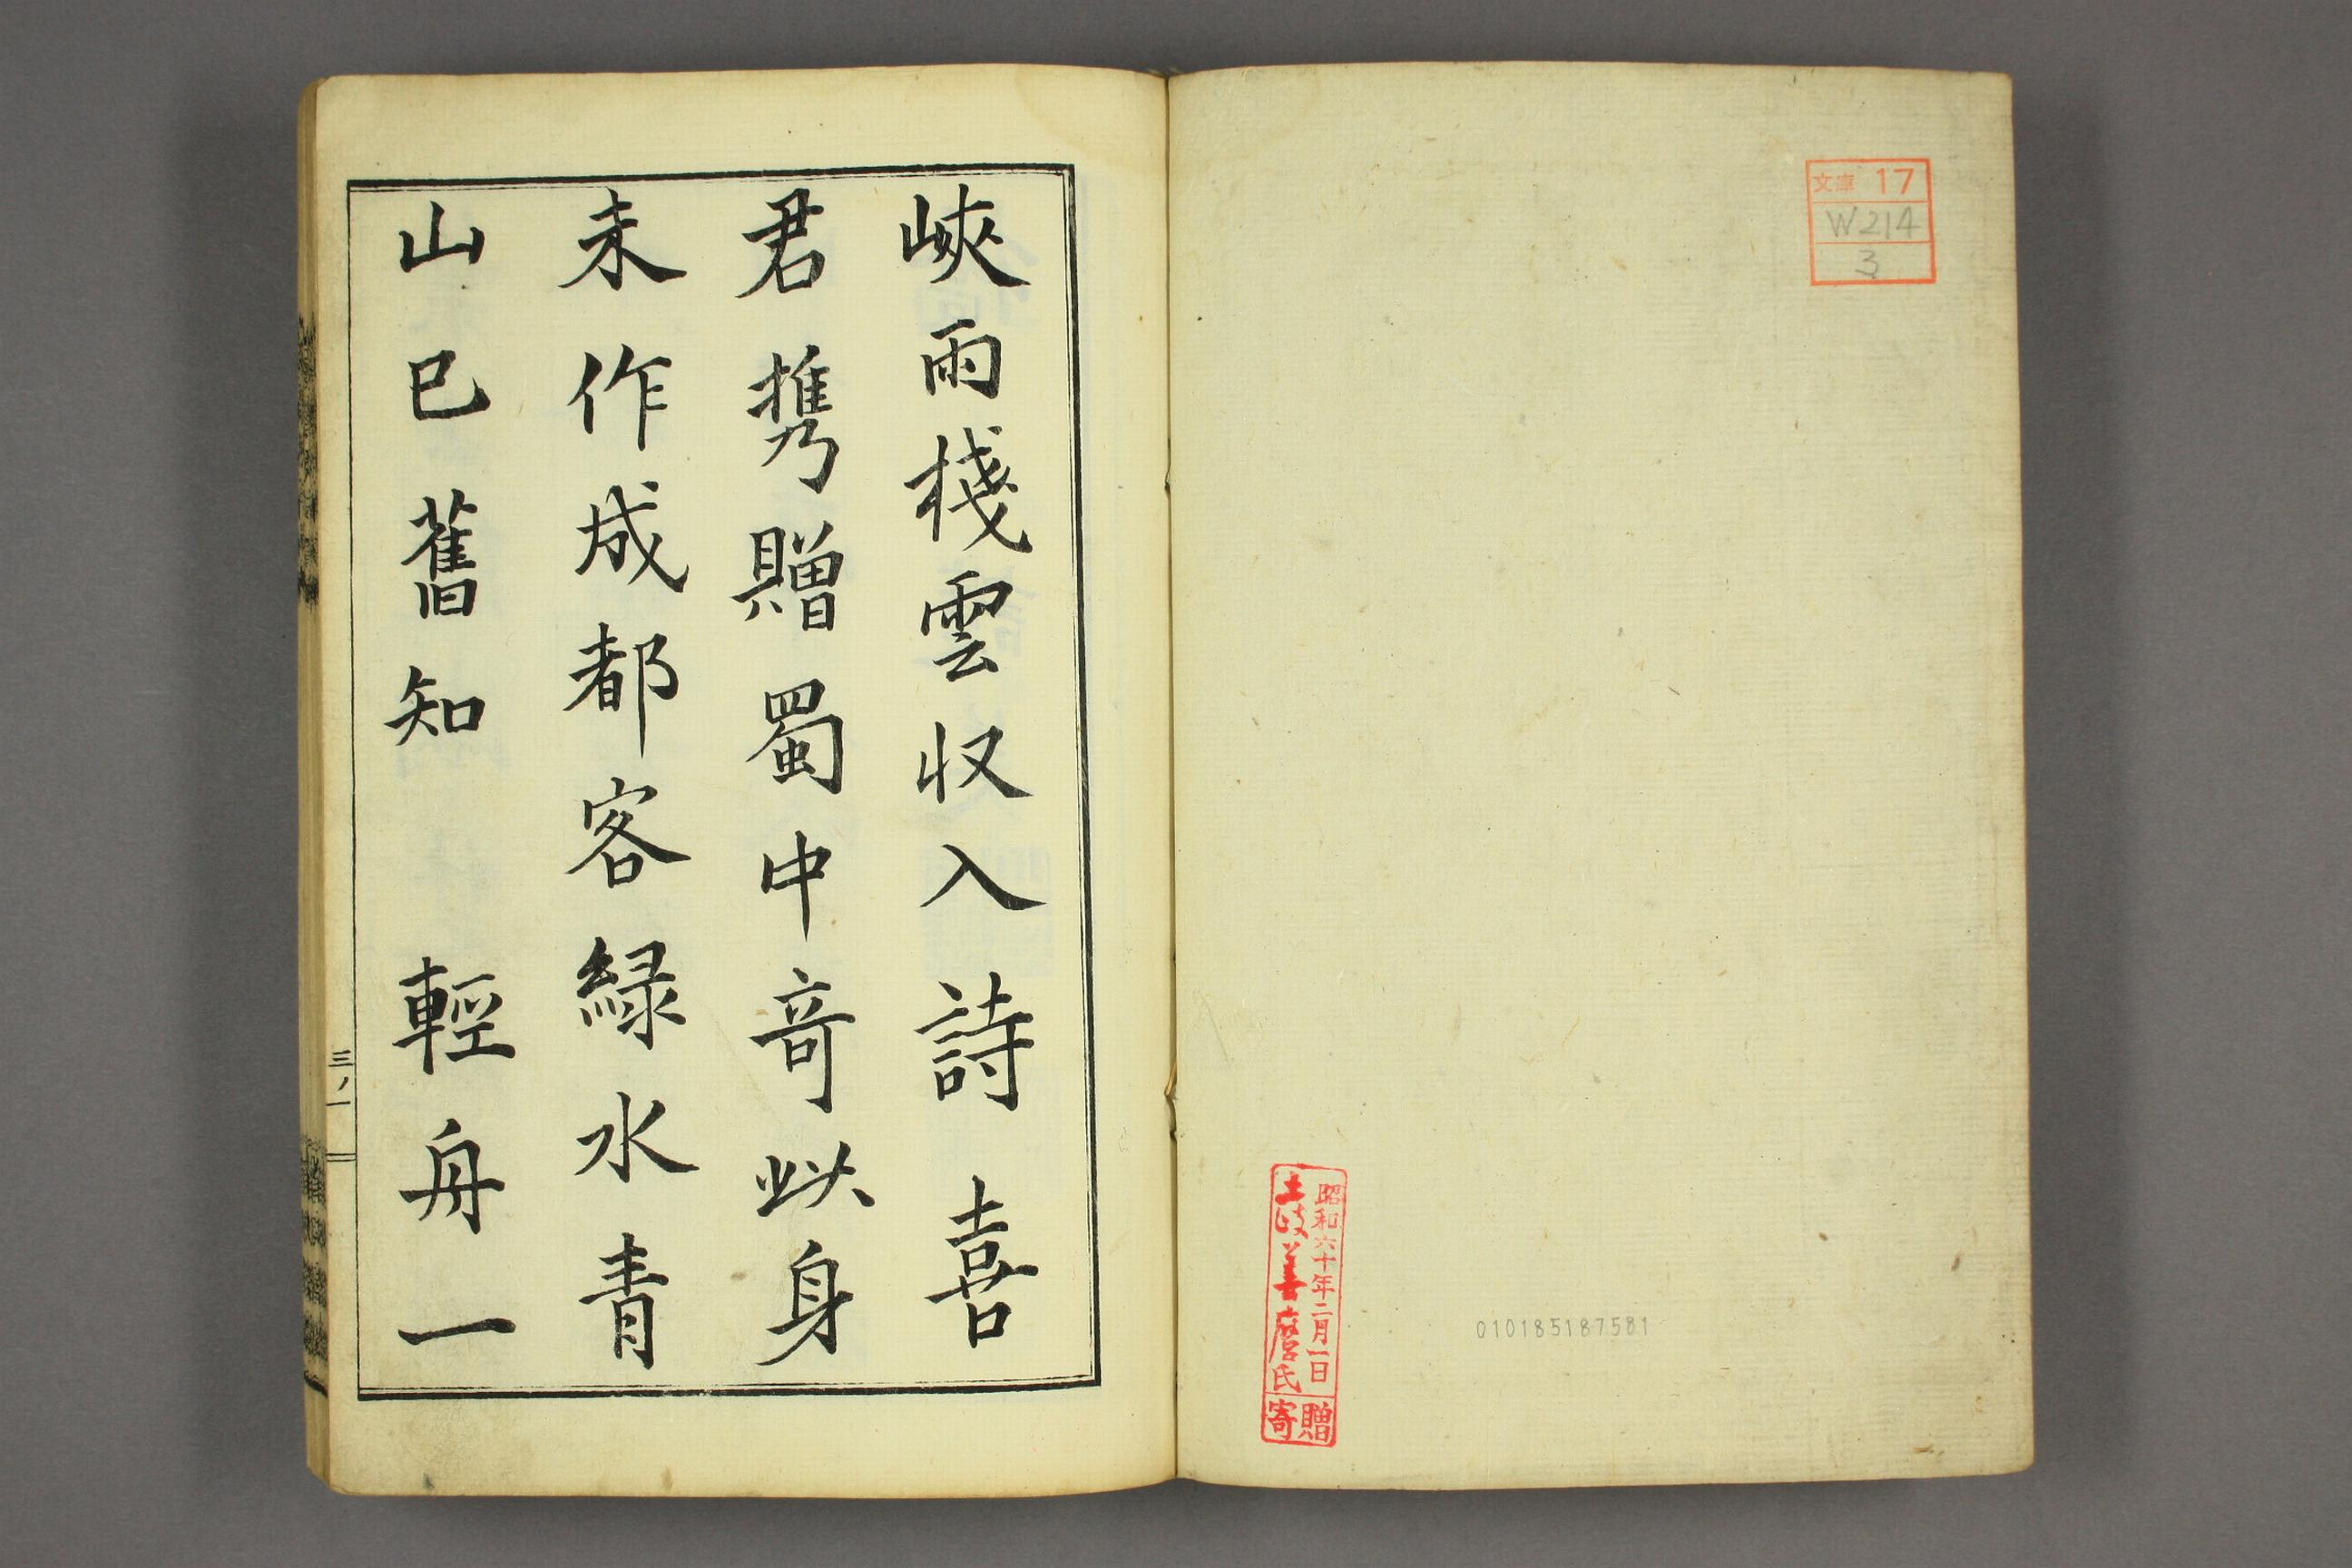 文庫 17
W214
3
昭和六十年二月一日
土岐善麿氏
寄贈
010185187581
峽雨棧雲収入詩 喜
君携贈蜀中竒以身
未作成都客緑水青
山已舊知 輕舟一
三ノ一